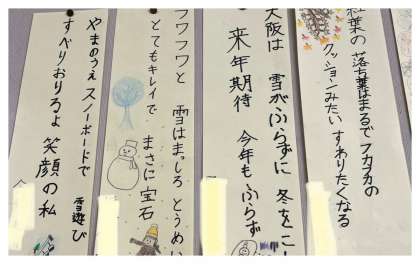 紅葉の 落ち葉はまるで フカフカの
クッションみたい すわりたくなる
大阪は 雪がふらずに 冬をこ
来年期待 今年も ふらず
フワフワと 雪はまっしろ とうめい
とてもキレイで まさに宝石
やまのうえ スノーボードで 雪遊び
すべりおりるよ 笑顔の私